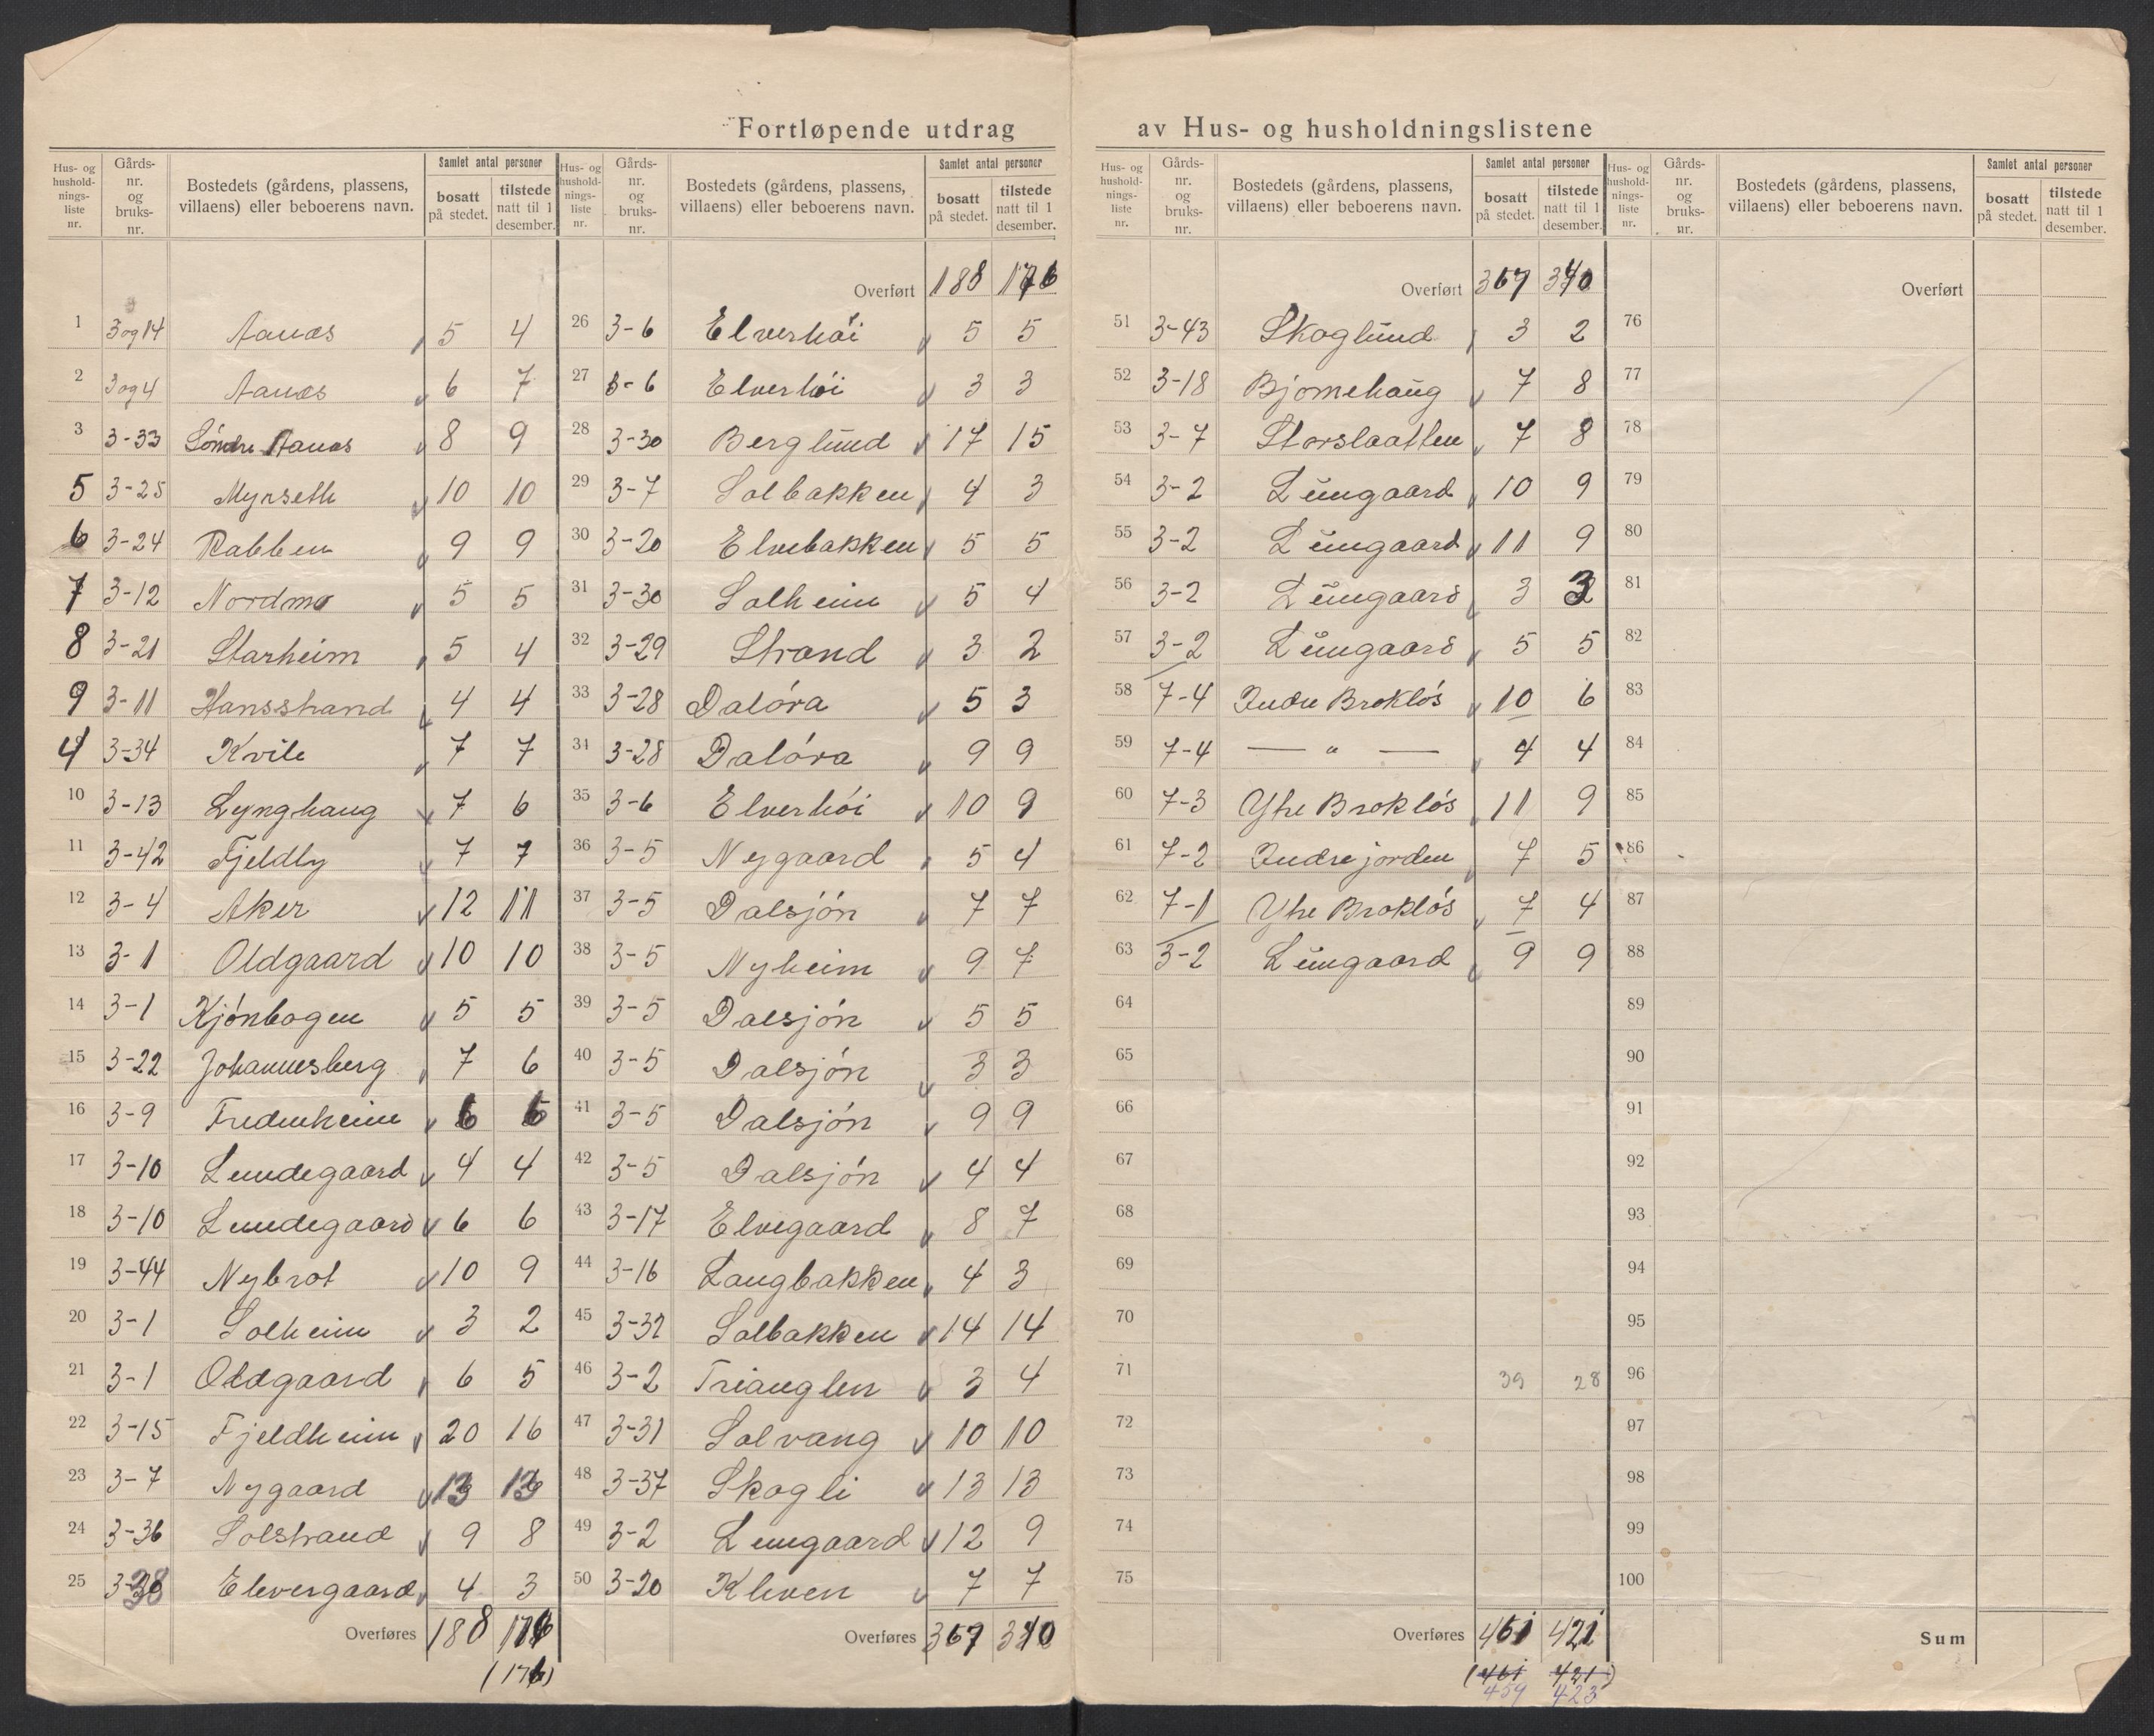 Fortløpende utdrag av Hus- og husholdningslistene
Hus- og husholdnings-liste nr. Gårds-nr. og bruks-nr. Bostedets (gårdens, plassens, villaens) eller beboerens navn. Samlet antal personer bosatt på stedet. tilstede natt til 1 desember.
1 3 og 14 Aanæs 5 4
2 3 og 4 Aanæs 6 7
3 3-33 Söndre Aanæs 8 9
5 3-25 Myrseth 10 10
6 3-24 Rabben 9 9
7 3-12 Nordmo 5 5
8 3-21 Starheim 5 4
9 3-11 Hansstrand 4 4
4 3-34 Kvile 7 7
10 3-13 Lynghaug 7 6
11 3-42 Fjeldly 7 7
12 3-4 Aker 12 11
13 3-1 Oldgaard 10 10
14 3-1 Kjönbogen 5 5
15 3-22 Johannesberg 7 6
16 3-9 Fredenheim 6 6
17 3-10 Lundegaard 4 4
18 3-10 Lundegaard 6 6
19 3-44 Nybrot 10 9
20 3-1 Solheim 3 2
21 3-1 Oldgaard 6 5
22 3-15 Fjeldheim 20 16
23 3-7 Nygaard 13 13
24 3-36 Solstrand 9 8
25 3-38 Elevergaard 4 3
Overføres 188 176
(176)
Hus- og husholdnings-liste nr. Gårds-nr. og bruks-nr. Bostedets (gårdens, plassens, villaens) eller beboerens navn. Samlet antal personer bosatt på stedet. tilstede natt til 1 desember.
Overført 188 176
26 3-6 Elverhöi 5 5
27 3-6 Elverhöi 3 3
28 3-30 Berglund 17 15
29 3-7 Solbakken 4 3
30 3-20 Elvebakken 5 5
31 3-30 Solheim 5 4
32 3-29 Strand 3 2
33 3-28 Dalöra 5 3
34 3-28 Dalöra 9 9
35 3-6 Elverhöi 10 9
36 3-5 Nygaard 5 4
37 3-5 Dalsjön 7 7
38 3-5 Nyheim 9 7
39 3-5 Dalsjön 5 5
40 3-5 Dalsjön 3 3
41 3-5 Dalsjön 9 9
42 3-5 Dalsjön 4 4
43 3-17 Elvegaard 8 7
44 3-16 Langbakken 4 3
45 3-32 Solbakken 14 14
46 3-2 Trianglen 3 4
47 3-31 Solvang 10 10
48 3-37 Skogli 13 13
49 3-2 Lungaard 12 9
50 3-20 Kleven 7 7
Overføres 367 340
Hus- og husholdnings-liste nr. Gårds-nr. og bruks-nr. Bostedets (gårdens, plassens, villaens) eller beboerens navn. Samlet antal personer bosatt på stedet. tilstede natt til 1 desember.
Overført 367 340
51 3-43 Skoglund 3 2
52 3-18 Bjørnehaug 7 8
53 3-7 Storslaatten 7 8
54 3-2 Lungaard 10 9
55 3-2 Lungaard 11 9
56 3-2 Lungaard 3 3
57 3-2 Lungaard 5 5
58 7-4 Indre Broklös 10 6
59 7-4 — " — 4 4
60 7-3 Ytre Broklös 11 9
61 7-2 Indrejorden 7 5
62 7-1 Ytre Broklös 7 4
63 3-2 Lungaard 9 9
64
65
66
67
68
69
70
71 39 28
72
73
74
75
Overføres 461 421
(461 421)
459 423
Hus- og husholdnings-liste nr. Gårds-nr. og bruks-nr. Bostedets (gårdens, plassens, villaens) eller beboerens navn. Samlet antal personer bosatt på stedet. tilstede natt til 1 desember.
Overført
76
77
78
79
80
81
82
83
84
85
86
87
88
89
90
91
92
93
94
95
96
97
98
99
100
Sum